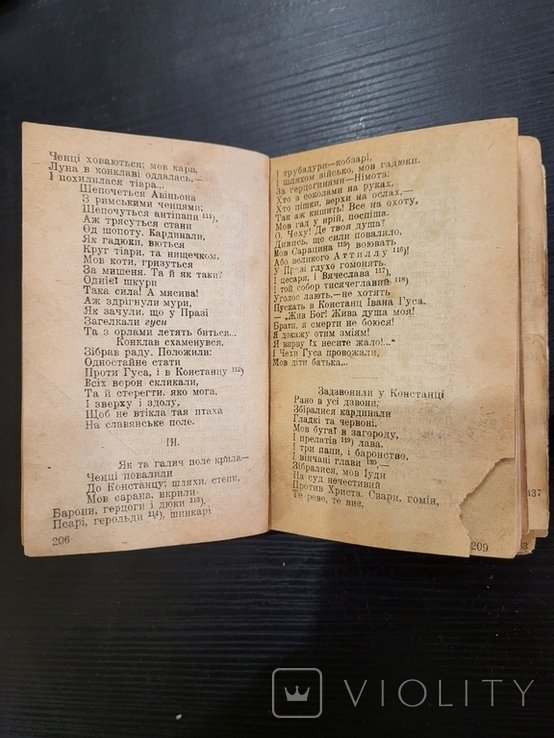 Ченці ховаються; мов кара,
Луна в конклаві оддалась,—
І похилилася тіара...
Шепочеться Авіньона
З римськими ченцями;
Шепочуться антіпапи 111),
Аж трясуться стани
Од шопоту. Кардинали,
Як гадюки, вються
Круг тіари, та нищечком,
Мов коти, гризуться
За мишеня. Та й як таки?
Однієї шкури
Такa сила! А мясива!
Аж здрігнули мури,
Як зачули, що у Празі
Загелкали гуси
Та з орлами летять биться...
Конклав схаменувся,
Зібрав раду. Положили:
Одностайне стати
Проти Гуса, і в Констанцу 112)
Всіх ворон скликали,
Та й стерегти, яко мога,
І зверху і здолу,
Щоб не втікла тая птаха
На славянське поле.
III.
Як та галич поле крила—
Ченці повалили
До Констанцу: шляхи, степи,
Мов сарана, вкрили
Барони, герцоги і дюки 113),
Псарі, герольди 114), шинкарі
206
І трубадури—кобзарі,
І шляхом військо, мов гадюки.
За герцогинями—Німота:
Хто з соколами на руках,
Хто пішки, верхи на ослах,—
Так аж кишить! Все на охоту,
Мов гад у ирій, поспіша.
О, Чеху! Де твоя душа?
Дивись, що сили повалило,
Мов Сарацина 115) воювать
Або великого Аттиллу 116)!
У Празі глухо гомонять.
І цесаря, і Вячеслава 117),
І той собор тисячеглавий 118)
Уголос лають,—не хотять
Пускать в Констанц Івана Гуса.
— „Жив Бог! Жива душа моя!
Брати, я смерти не боюся!
Я докажу отим зміям!
Я вирву їх несите жало!..."
І Чехи Гуса провожали,
Мов діти батька...
Задзвонили у Констанці
Рано в усі дзвони.
Збіралися кардинали
Гладкі та червоні.
Мов бугаї в загороду,
І прелатів 119) лава.
І три папи, і баронство,
І вінчані глави 120),—
Зібралися, мов Іуди
На суд нечестивий
Против Христа. Свари, гомін,
Те реве, те виє,
209
437
VIOLITY